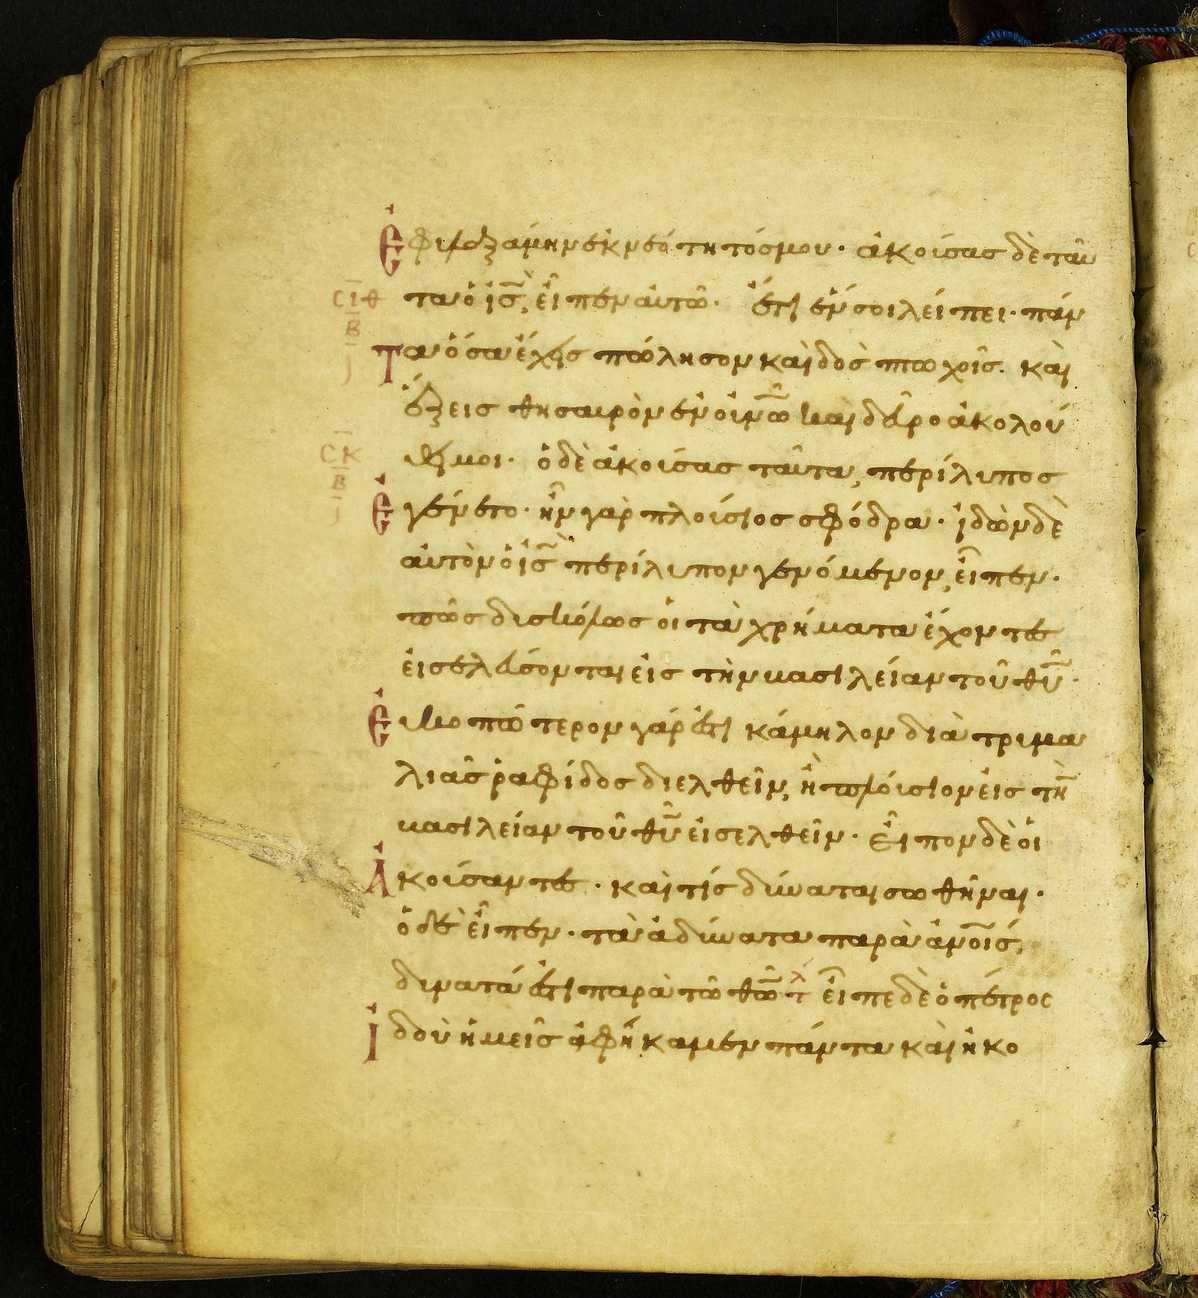 Ἐφυλαξάμην ἐκ νεότητός μου· ἀκούσας δὲ ταῦ
ϹΙΘ
τα ὁ ἰς̅, εἶπεν αὐτῶ· ἔτι ἕν σοι λείπει· πάν
Β
Τα ὅσα ἔχεις πώλησον καὶ δὸς πτωχοῖς· καὶ
ἕξεις θησαυρὸν ἐν οὐνω̅ καὶ δεῦρο ἀκολού
ϹΚ
θει μοι· ὁ δὲ ἀκούσας ταῦτα, περίλυπος
Β
Ἐγένετο· ἦν γὰρ πλούσιος σφόδρα· ἰδὼν δὲ
αὐτὸν ὁ ἰς̅ περίλυπον γενόμενον, εἶπεν·
πῶς δυσκόλως οἱ τὰ χρήματα ἔχοντες
εἰσελεύσονται εἰς τὴν βασιλείαν τοῦ θυ̅·
Ἐυκοπώτερον γάρ ἐστι κάμηλον διὰ τρυμα
λιᾶς ῥαφίδος διελθεῖν, ἢ πλούσιον εἰς τὴν
βασιλείαν τοῦ θυ̅ εἰσελθεῖν· εἶπον δὲ οἱ
Ἀκούσαντες· καὶ τίς δύναται σωθῆναι·
ὁ δὲ εἶπεν· τὰ ἀδύνατα παρὰ ἀνοις̅,
δυνατά ἐστι παρὰ τῶ θω̅ εἶπε δὲ ὁ πέτρος
Ἰδοὺ ἡμεῖς ἀφήκαμεν πάντα καὶ ἠκο